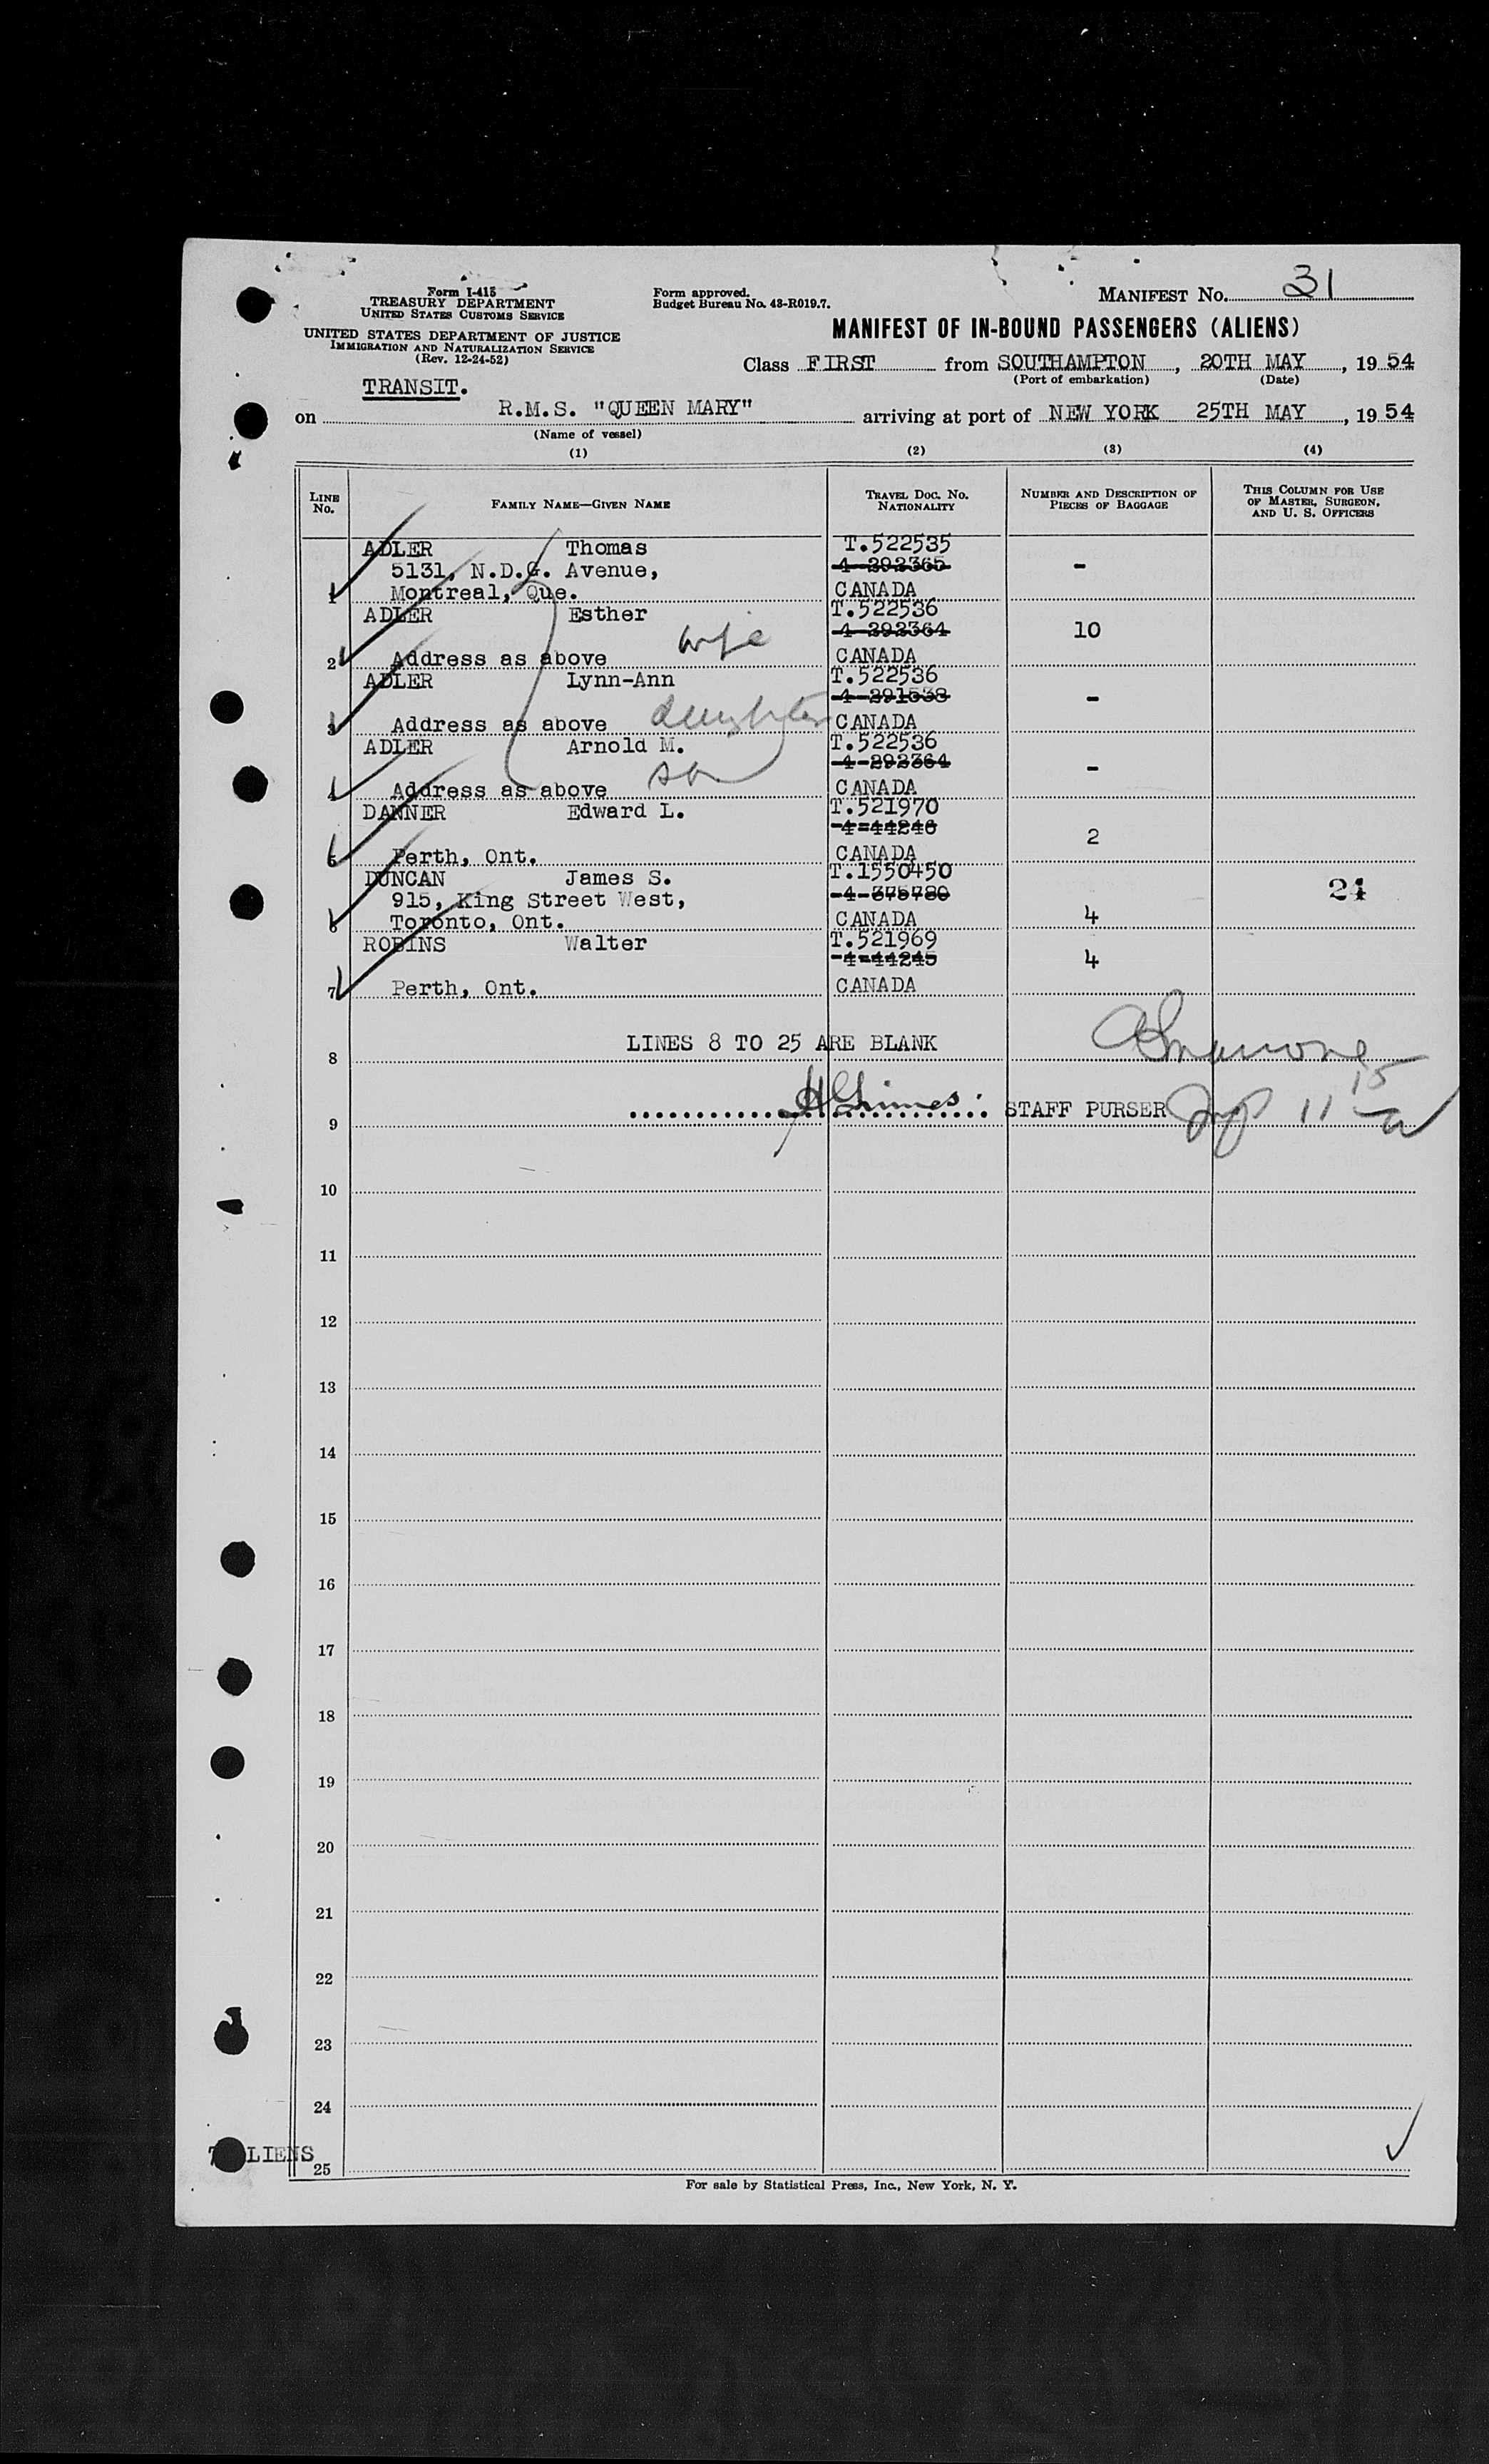 Form I-415
TREASURY DEPARTMENT
UNITED STATES CUSTOMS SERVICE
UNITED STATES DEPARTMENT OF JUSTICE
IMMIGRATION AND NATURALIZATION SERVICE
(Rev. 12-24-52)
Form approved.
Budget Bureau No. 43-R019.7.
MANIFEST No. 31
MANIFEST OF IN-BOUND PASSENGERS (ALIENS)
Class FIRST from SOUTHAMPTON, 20TH MAY, 19 54
(Port of embarkation) (Date)
TRANSIT.
on R.M.S. "QUEEN MARY" arriving at port of NEW YORK 25TH MAY, 19 54
(Name of vessel)
(1) (2) (3) (4)
LINE No. FAMILY NAME—GIVEN NAME TRAVEL DOC. NO. NATIONALITY NUMBER AND DESCRIPTION OF PIECES OF BAGGAGE THIS COLUMN FOR USE OF MASTER, SURGEON, AND U. S. OFFICERS
ADLER Thomas T.522535
5131, N.D.G. Avenue, 4-292365 -
1 Montreal, Que. CANADA
ADLER Esther T.522536
wife 4-292364 10
2 Address as above CANADA
ADLER Lynn-Ann T.522536
daughter 4-291538 -
3 Address as above CANADA
ADLER Arnold M. T.522536
son 4-292364 -
4 Address as above CANADA
DANNER Edward L. T.521970
4-44246 2
5 Perth, Ont. CANADA
DUNCAN James S. T.1550450
915, King Street West, 4-375780 24
6 Toronto, Ont. CANADA 4
ROBINS Walter T.521969
4-44245 4
7 Perth, Ont. CANADA
LINES 8 TO 25 ARE BLANK
8
STAFF PURSER
9
10
11
12
13
14
15
16
17
18
19
20
21
22
23
24
LIENS
25
For sale by Statistical Press, Inc., New York, N. Y.